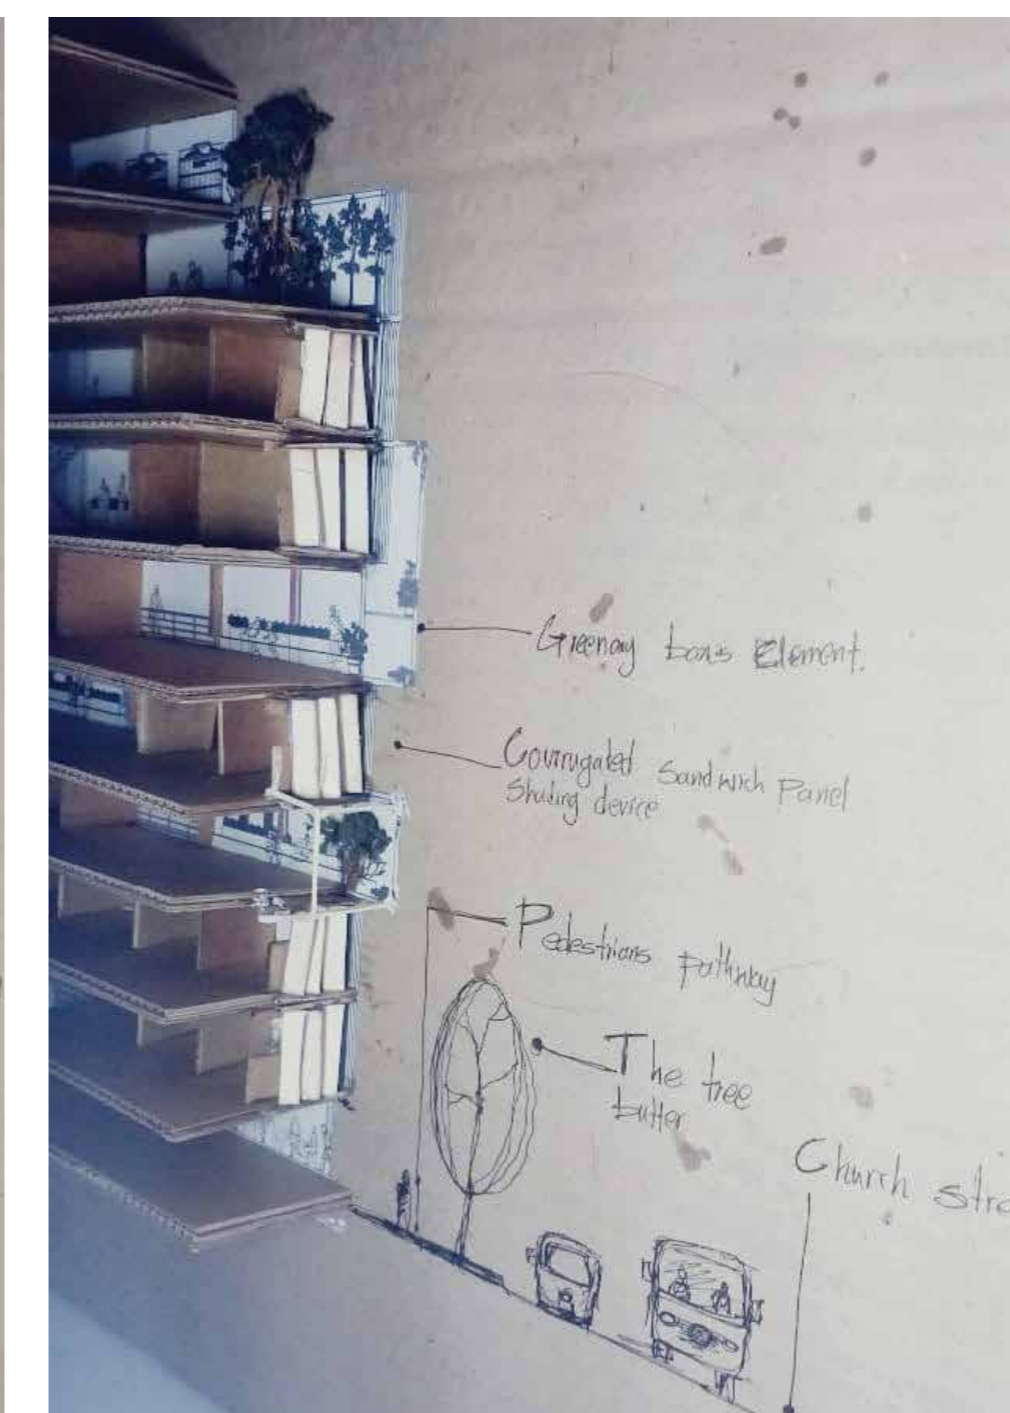 Greenary boxs Element.
Courrugated Sandwich Panel
Shading device
Pedestrians pathway
The tree
buffer
Church stre